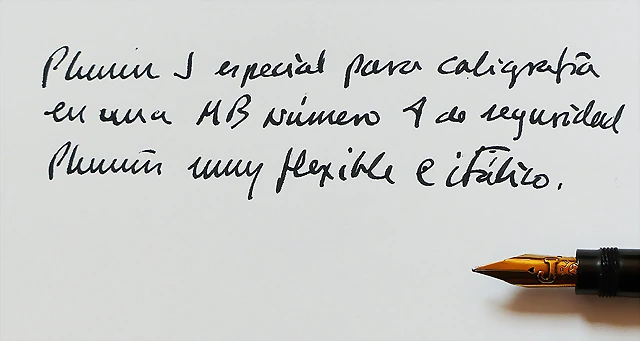 Plumín J especial para caligrafía
en una MB número 4 de seguridad
Plumín muy flexible e itálico.